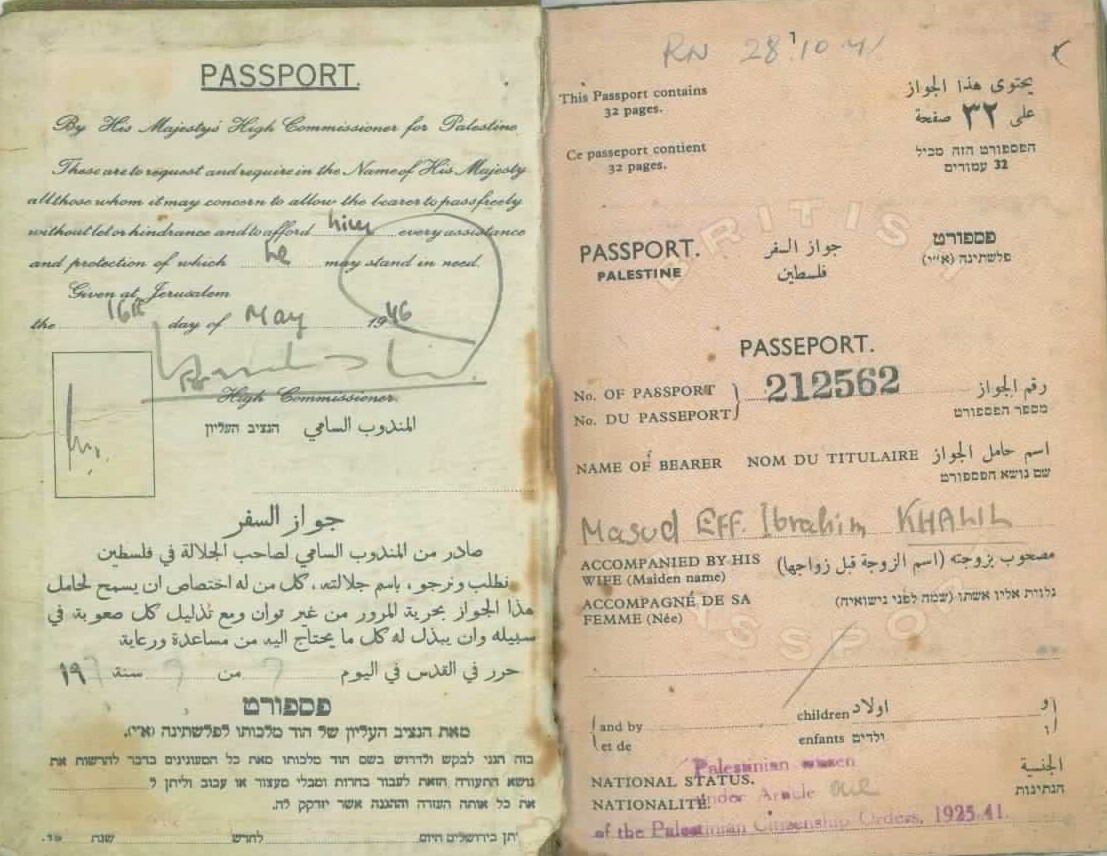 PASSPORT.
By His Majesty's High Commissioner for Palestine
These are to request and require in the Name of His Majesty
all those whom it may concern to allow the bearer to pass freely
without let or hindrance and to afford him every assistance
and protection of which he may stand in need.
Given at Jerusalem
the 16th day of May 1946
High Commissioner.
הנציב העליון المندوب السامي
جواز السفر
صادر من المندوب السامي لصاحب الجلالة في فلسطين
نطلب ونرجو، باسم جلالته، كل من له اختصاص ان يسمح لحامل
هذا الجواز بحرية المرور من غير توان ومع تذليل كل صعوبة في
سبيله وان يبذل له كل ما يحتاج اليه من مساعدة ورعاية
حرر في القدس في اليوم من سنة ١٩
פספורט
מאת הנציב העליון של הוד מלכותו לפלשתינה (א״י).
הנני לבקש ולדרוש בשם הוד מלכותו מאת כל המעונינים בדבר להרשות את
נושא התעודה הזאת לעבור בחרות ומבלי מעצור או עכוב וליתן ל
את כל אותה העזרה וההגנה אשר יזדקק לה.
ניתן בירושלים היום לחדש שנת 19.
RN 28 10 41
This Passport contains
32 pages.
يحتوى هذا الجواز
على ٣٢ صفحة
Ce passeport contient
32 pages.
הפספורט הזה מכיל
32 עמודים
BRITISH
PASSPORT.
PALESTINE
جواز السفر
فلسطين
פספורט
פלשתינה (א״י)
PASSEPORT.
No. OF PASSPORT
No. DU PASSEPORT
212562
رقم الجواز
מספר הפספורט
NAME OF BEARER NOM DU TITULAIRE اسم حامل الجواز
שם נושא הפספורט
Masud Eff. Ibrahim KHALIL
ACCOMPANIED BY HIS
WIFE (Maiden name)
مصحوب بزوجته (اسم الزوجة قبل زواجها)
ACCOMPAGNÉ DE SA
FEMME (Née)
נלוית אליו אשתו (שמה לפני נישואיה)
PASSPORT
and by children اولاد و
et de enfants ילדים ו
NATIONAL STATUS.
NATIONALITÉ
الجنسية
הנתינות
Palestinian citizen
under Article one
of the Palestinian Citizenship Orders, 1925-41.